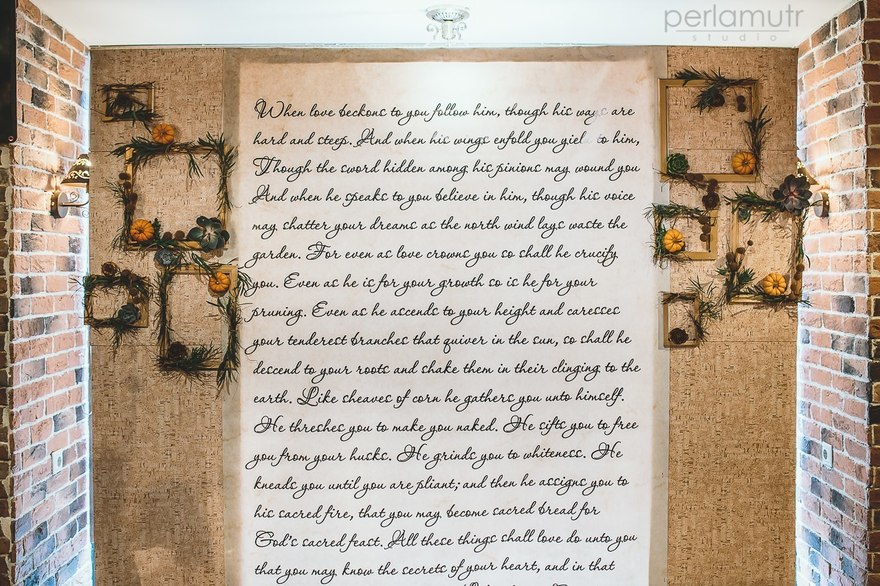 perlamutr
studio
When love beckons to you follow him, though his ways are
hard and steep. And when his wings enfold you yiel to him,
Though the sword hidden among his pinions may wound you
And when he speaks to you believe in him, though his voice
may shatter your dreams as the north wind lays waste the
garden. For even as love crowns you so shall he crucify
you. Even as he is for your growth so is he for your
pruning. Even as he ascends to your height and caresses
your tenderest branches that quiver in the sun, so shall he
descend to your roots and shake them in their clinging to the
earth. Like sheaves of corn he gathers you unto himself.
He threshes you to make you naked. He sifts you to free
you from your husks. He grinds you to whiteness. He
kneads you until you are pliant; and then he assigns you to
his sacred fire, that you may become sacred bread for
God's sacred feast. All these things shall love do unto you
that you may know the secrets of your heart, and in that